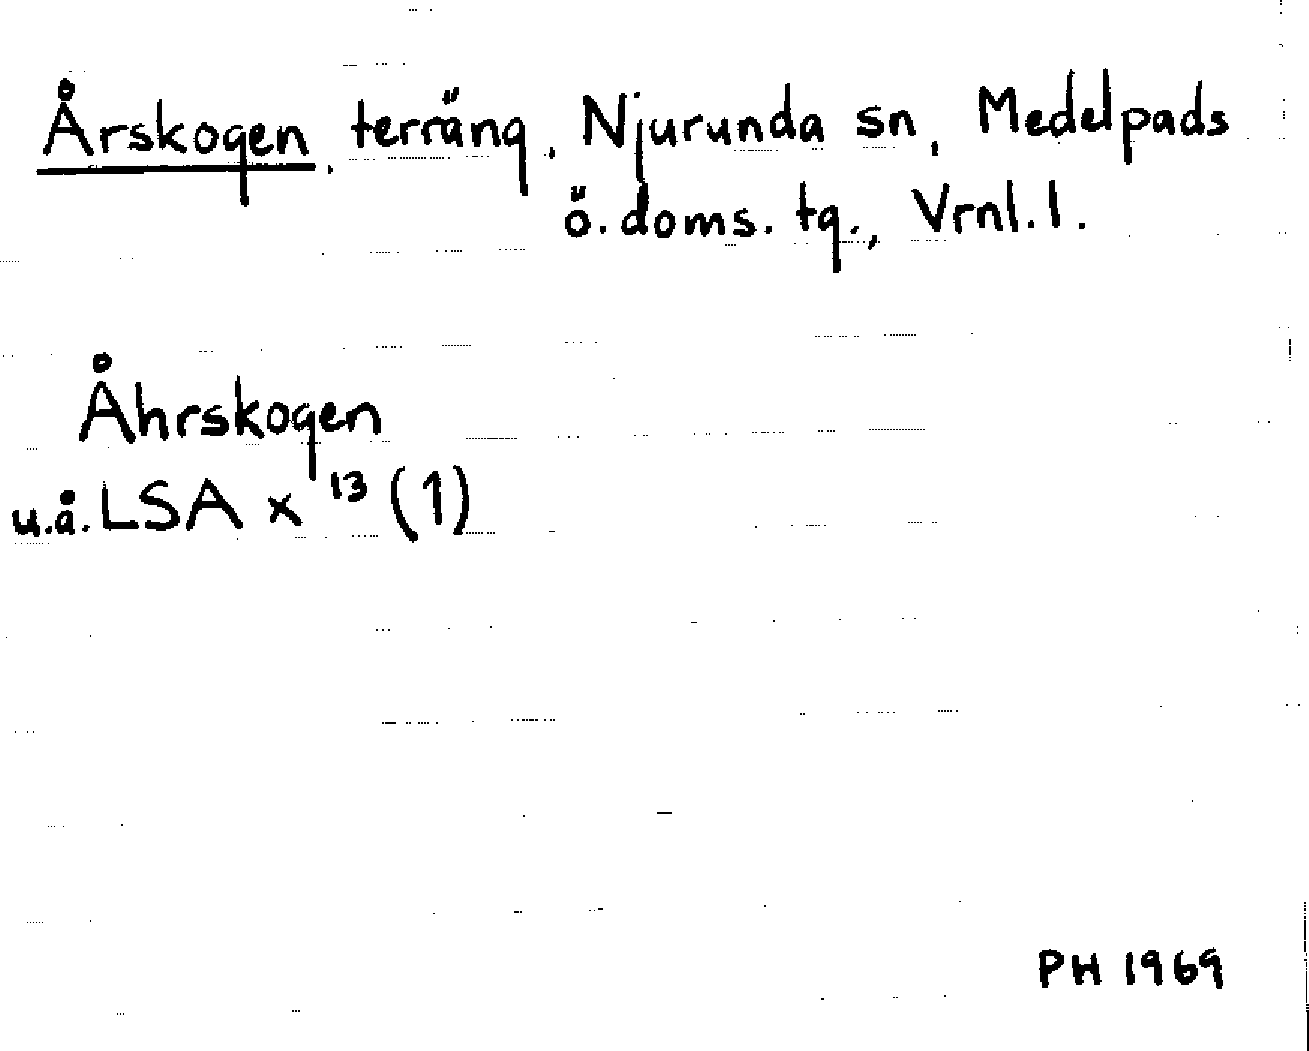 Årskogen, terräng, Njurunda sn, Medelpads
ö. doms. tg., Vrnl. l.
Åhrskogen
u.å. LSA x 13 (1)
PH 1969